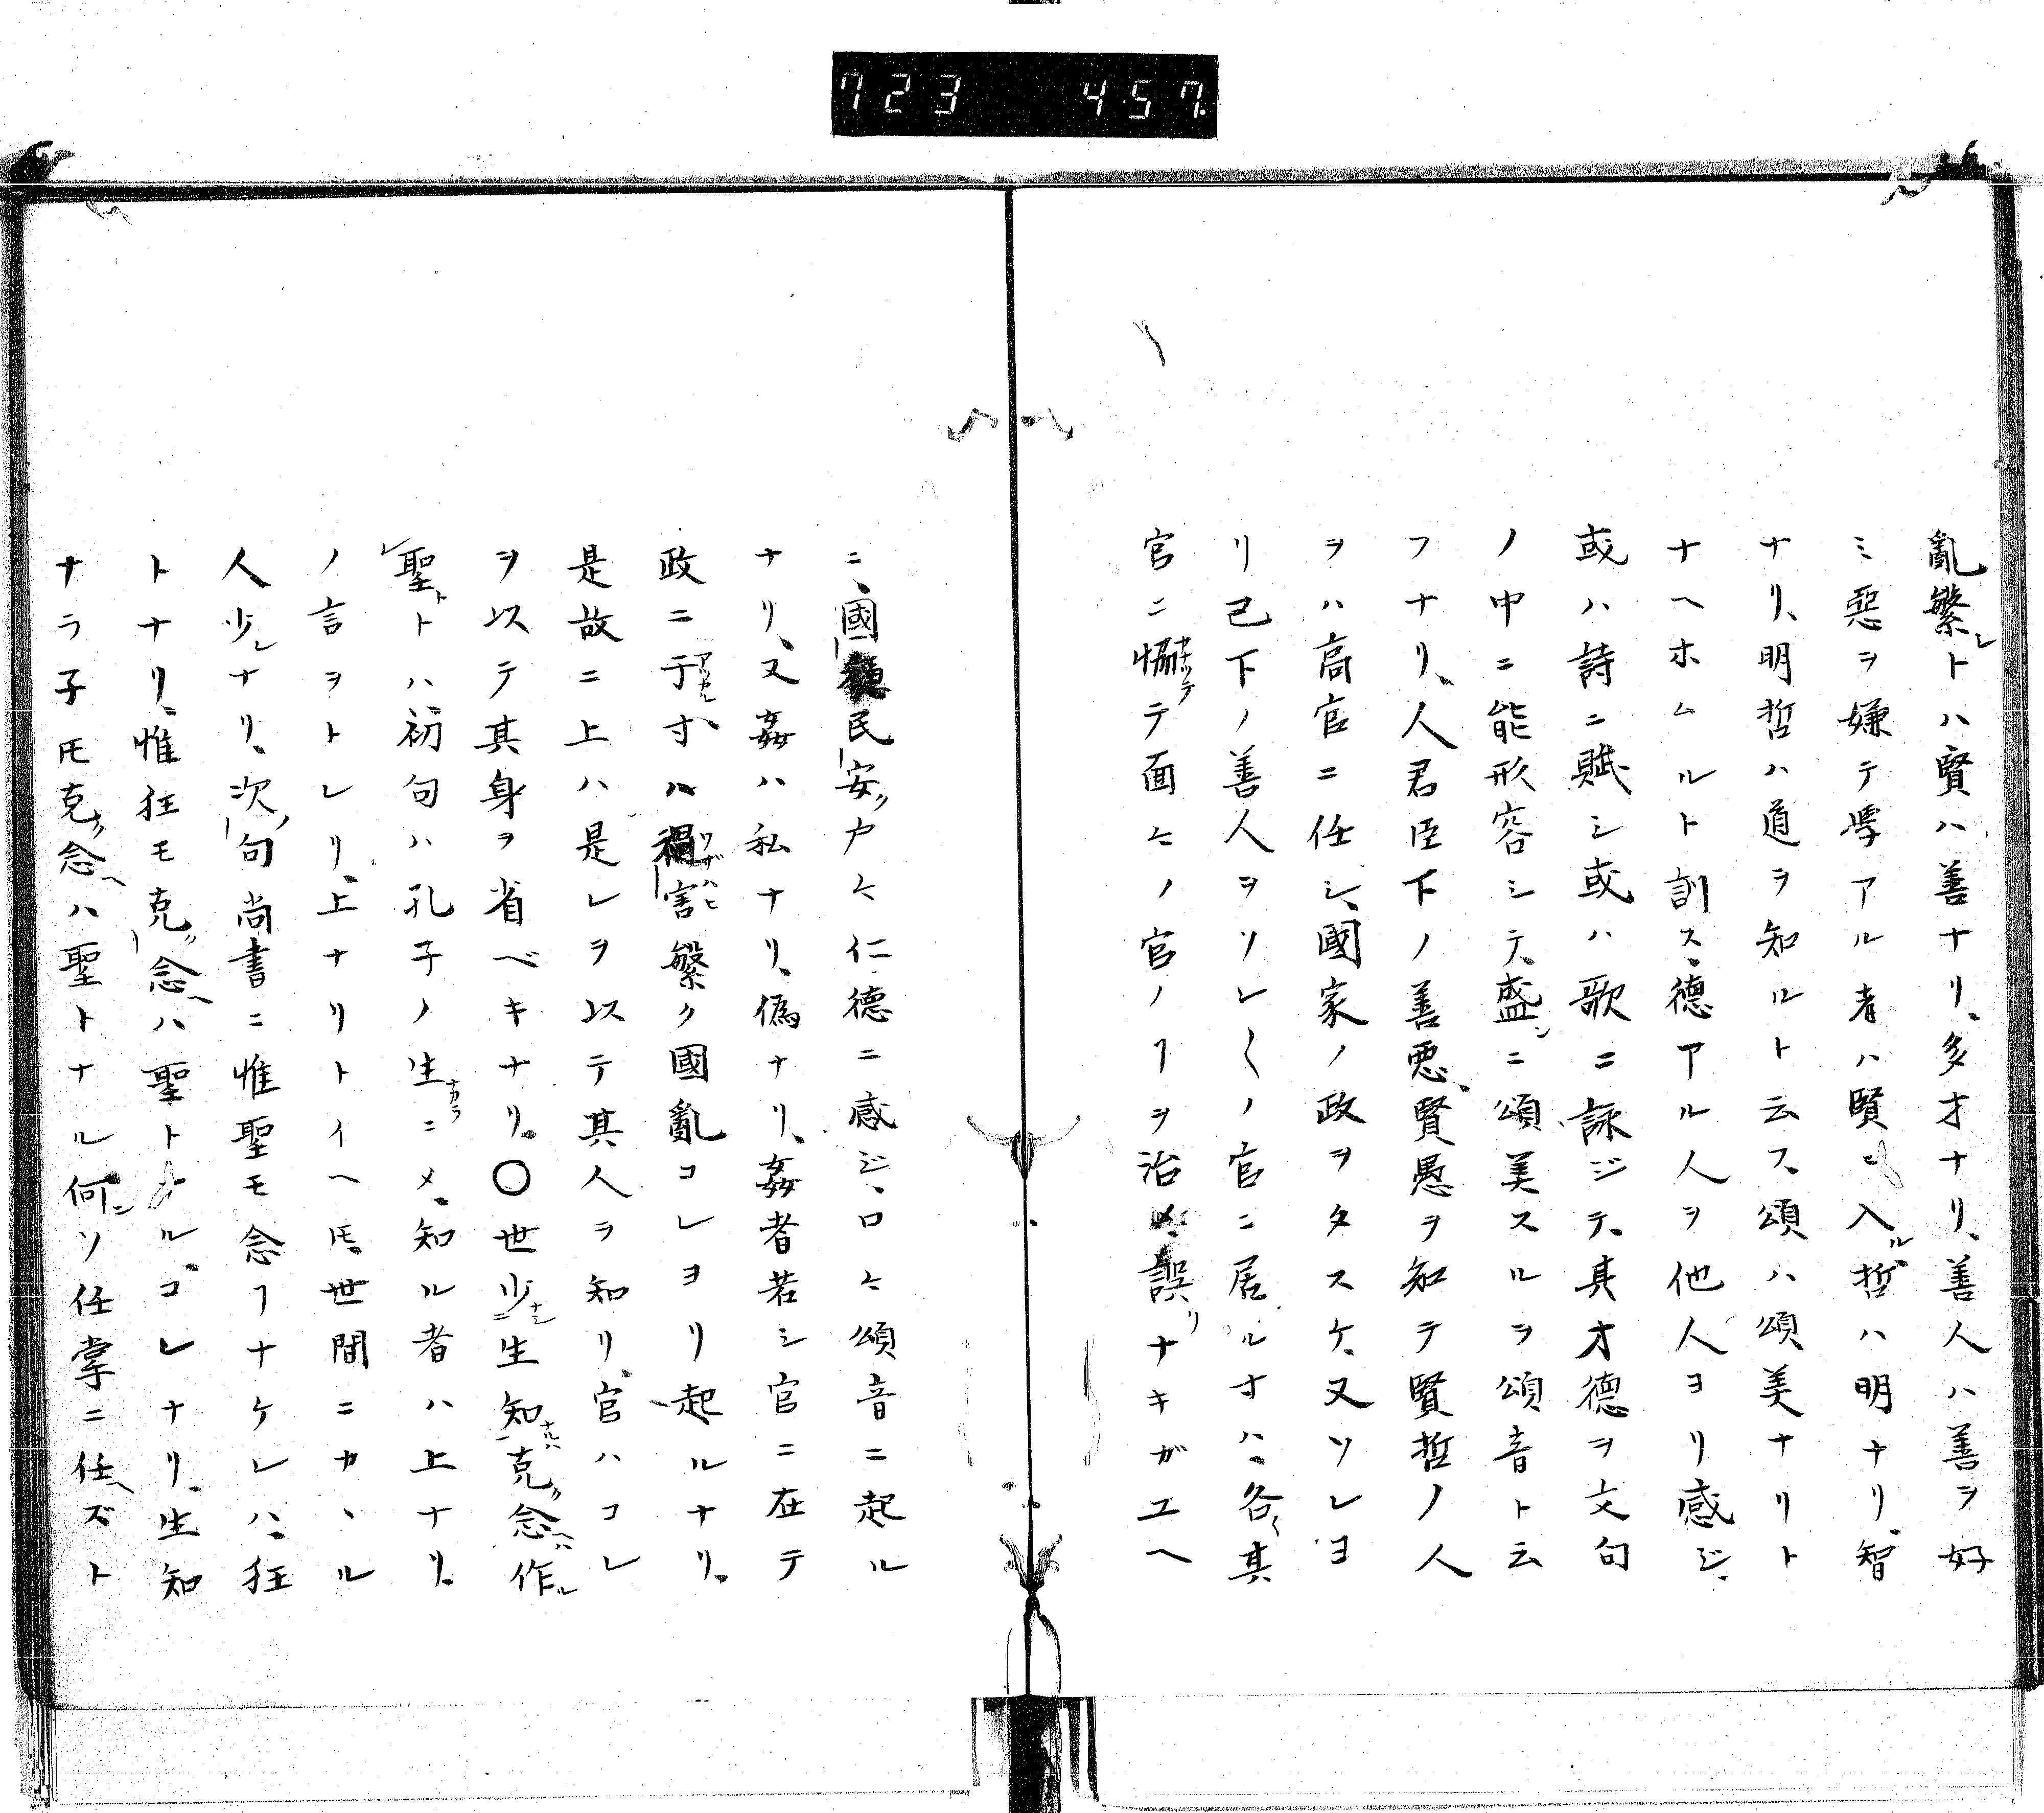 723 457
亂繁レトハ賢ハ善ナリ、多才ナリ、善人ハ善ヲ好
ミ惡ヲ嫌テ學アル者ハ賢ニ入ル哲ハ明ナリ、智
ナリ、明哲ハ道ヲ知ルト云フ、頌ハ頌美ナリト
ナヘホムルト訓ス、德アル人ヲ他人ヨリ感ジ、
或ハ詩ニ賦シ或ハ歌ニ詠ジテ、其才德ヲ文句
ノ中ニ能形容シテ、盛ンニ頌美スルヲ頌音ト云
フナリ、人君臣下ノ善悪、賢愚ヲ知テ賢哲ノ人
ヲハ高官ニ任シ、國家ノ政ヲタスケ、又ソレヨ
リ已下ノ善人ヲソレ〱ノ官ニ居ルオハ、各〱其
官ニ恊カナツテテ面々ノ官ノヿヲ治メ、誤リナキガユヘ
ニ、國穏民安ク戸々仁德ニ感ジ、口々頌音ニ起ル
ナリ、又姦ハ私ナリ、偽ナリ、姦者若シ官ニ在テ
政ニ于アツカルオハ禍ワザハヒ害繁ク國亂コレヨリ起ルナリ、
是故ニ上ハ是レヲ以テ其人ヲ知リ、官ハコレ
ヲ以テ其身ヲ省ベキナリ。〇世少ナシ二生知ナルハ一克ク念ヘハ作ル
レ聖トトハ、初句ハ孔子ノ生ナカラニメ、知ル者ハ上ナリ、
ノ言ヲトレリ、上ナリトイヘ𪜈、世間ニカヽル
人少レナリ、次ノ句尚書ニ惟聖モ念フナケレハ、狂
トナリ、惟狂モ克ク念ヘハ聖トナル、コレナリ、生知
ナラ子𪜈克ク念ヘハ聖トナル何ンソ任掌ニ任ヘズト